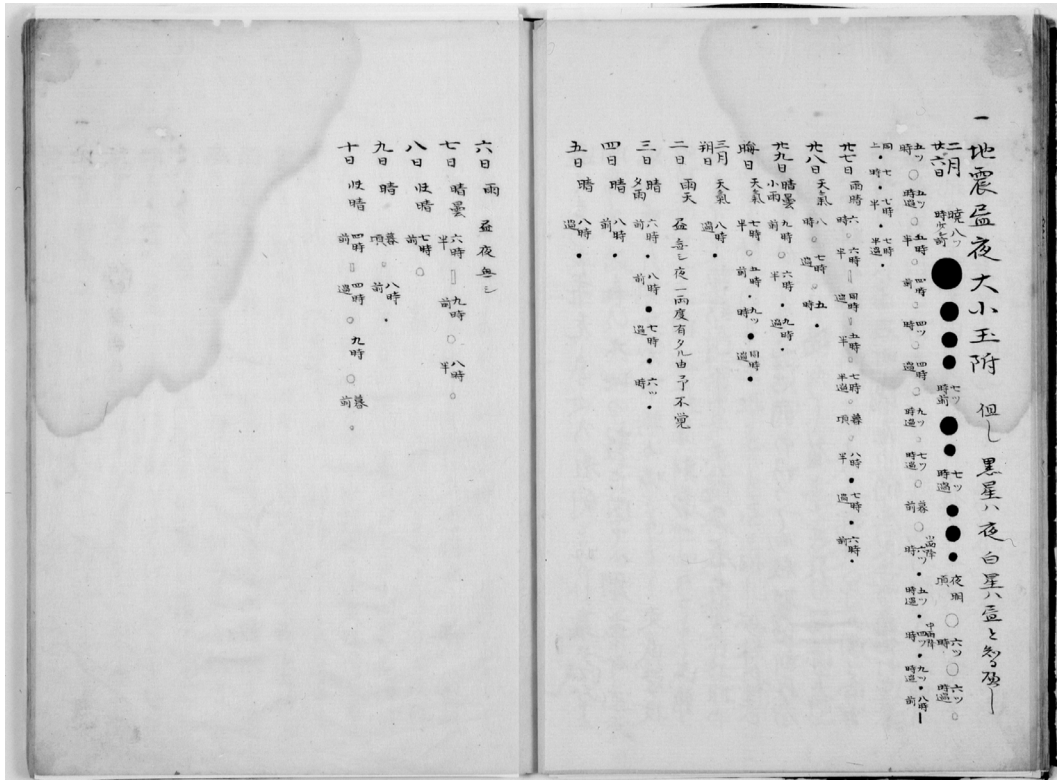 一 地震昼夜大小玉附 但し黒星ハ夜白星ハ昼と知る
二月廿六日 暁八ツ時 ● ● ● ● 七ツ時前 ● ● 七ツ時過 ● ● ● 夜明頃 ○ 六ツ時 ○ 六ツ時過 ○
五ツ時 ○ 五ツ時過 ○ 五時半 ○ 四時前 ○ 四ツ時 ○ 四時過 ○ 九ツ時過 ○ 七ツ時過 ○ 暮前 ○ 六ツ時 ● 五ツ時過 ● 四ツ時 ● 九ツ時過 ● 八時前
同 七時 ● 七時半 ● 七時半過 ●
廿七日 雨晴 六時 ○ 六時半 ○ 同時過 ○ 五時半 ○ 七時半過 ○ 暮頃 ○ 八時半 ● 七時過 ● 六時前 ●
廿八日 天氣 八時 ○ 七時過 ○ 五時 ●
廿九日 晴曇小雨 九時前 ○ 六時半 ● 九時過 ●
晦日 天氣 七時半 ○ 五時前 ● 九ツ時 ● 同時過 ●
三月朔日 天氣 八時過 ●
二日 雨天 昼無シ夜一両度有タル由予不覚
三日 晴夕雨 六時前 ● 八時前 ● 七時過 ● 六ツ時 ●
四日 晴 八時前 ●
五日 晴 八時過 ●
六日 雨 昼夜無シ
七日 晴曇 六時半 ○ 九時前 ○ 八時半 ○
八日 快晴 七時前 ○
九日 晴 暮頃 ○ 八時前 ●
十日 快晴 四時前 ○ 四時過 ○ 九時 ○ 暮前 ○